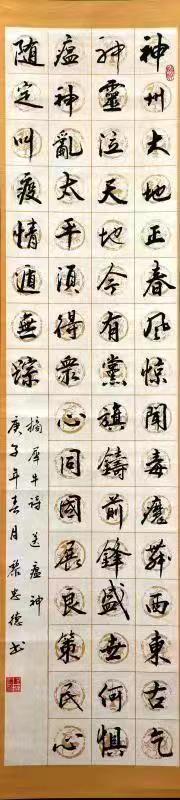 神州大地正春風惊聞毒魔舞西東古乞
神靈泣天地今有黨旗鑄前鋒盛世何惧
瘟神亂太平須得衆心同國展良策民心
随定叫疫情遁無踪
摘犀牛诗送瘟神
庚子年春月忠德书